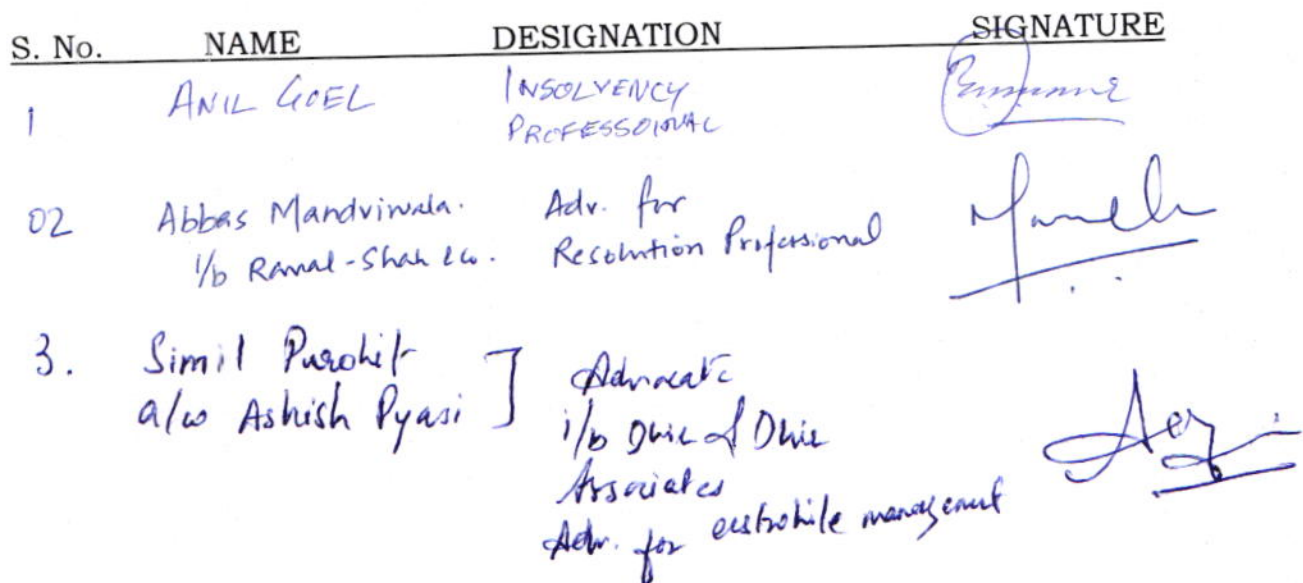 S. No. NAME DESIGNATION SIGNATURE
1 ANIL GOEL INSOLVENCY
PROFESSOINAL
02 Abbas Mandviwala. Adv. for
i/b Raval-Shah & co. Resolution Professional
3. Simil Purohit Advocate
a/w Ashish Pyasi ] i/b Dhir & Dhir
Associates
Adv. for erstwhile management